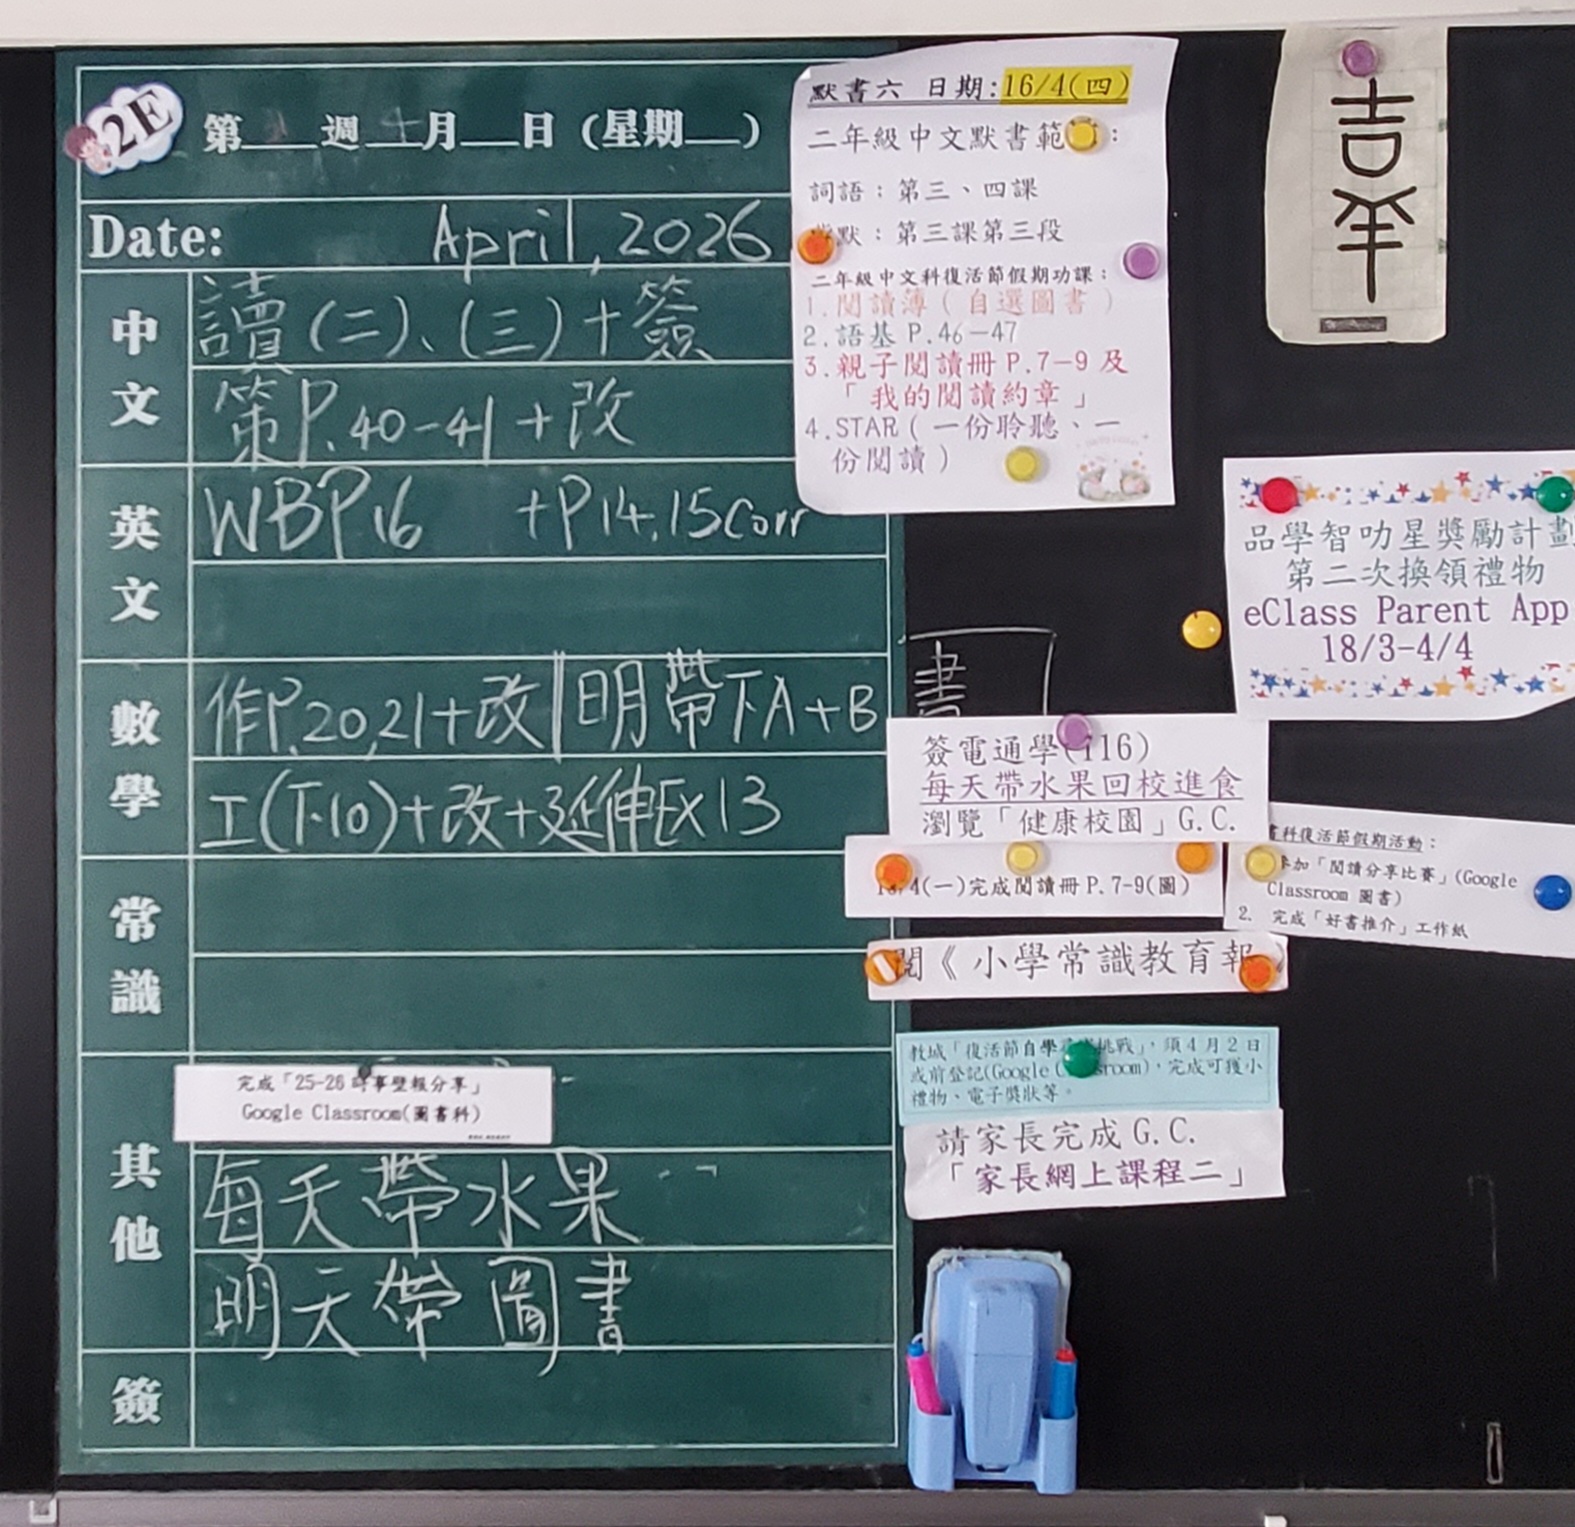 2E
第 週 月 日 (星期 )
Date: April, 2026
中文
讀(二)、(三)+簽
策P.40-41+改
英文
WBP16 +P14,15Corr
數學
作P.20,21+改|明帶下A+B
工(下10)+改+延伸Ex13
常識
其他
完成「25-26時事壁報分享」
Google Classroom(圖書科)
每天帶水果
明天帶圖書
簽
默書六 日期:16/4(四)
二年級中文默書範 :
詞語:第三、四課
默:第三課第三段
二年級中文科復活節假期功課:
1.閱讀簿(自選圖書)
2.語基 P.46-47
3.親子閱讀冊 P.7-9 及
「我的閱讀約章」
4.STAR(一份聆聽、一
份閱讀)
書
簽電通學(116)
每天帶水果回校進食
瀏覽「健康校園」G.C.
4(一)完成閱讀冊P.7-9(圖)
閱《小學常識教育報
教城「復活節自學 挑戰」,須4月2日
或前登記(Google C ssroom),完成可獲小
禮物、電子獎狀等。
請家長完成 G.C.
「家長網上課程二」
吉羊
品學智叻星獎勵計劃
第二次換領禮物
eClass Parent App
18/3-4/4
科復活節假期活動:
參加「閱讀分享比賽」(Google
Classroom 圖書)
2. 完成「好書推介」工作紙